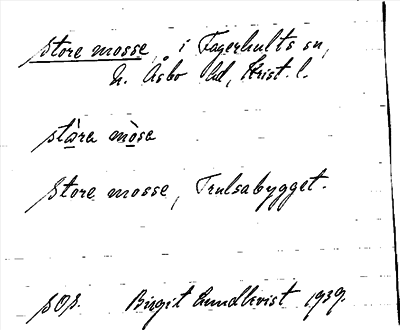 Store mosse, i Fagerhults sn,
N. Åsbo hd, Krist. l.
stàra mòsa
Store mosse, Trulsabygget.
Birgit Lundkvist 1939.